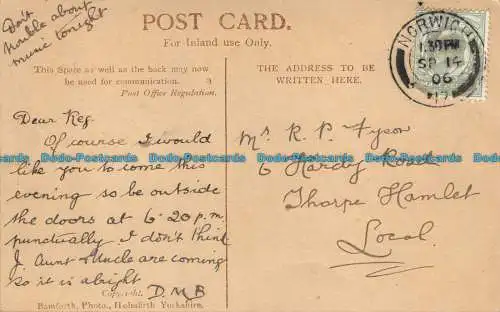 Don't
trouble about
music tonight
POST CARD.
For Inland use Only.
This Space as well as the back may now
be used for communication.
Post Office Regulation.
THE ADDRESS TO BE
WRITTEN HERE.
NORWICH
1.30 PM
SP 14
06
Dear Reg
Of course I would
like you to come this
evening so be outside
the doors at 6.20 p.m.
punctually I don't think
Aunt & Uncle are coming
so it is alright
D.M.B
Copyright.
Bamforth, Photo., Holmfirth Yorkshire.
Mr R. P. Fyson
6 Hardy Road
Thorpe Hamlet
Local.
Dodo-Postcards Dodo-Postcards Dodo-Postcards Dodo-Postcards